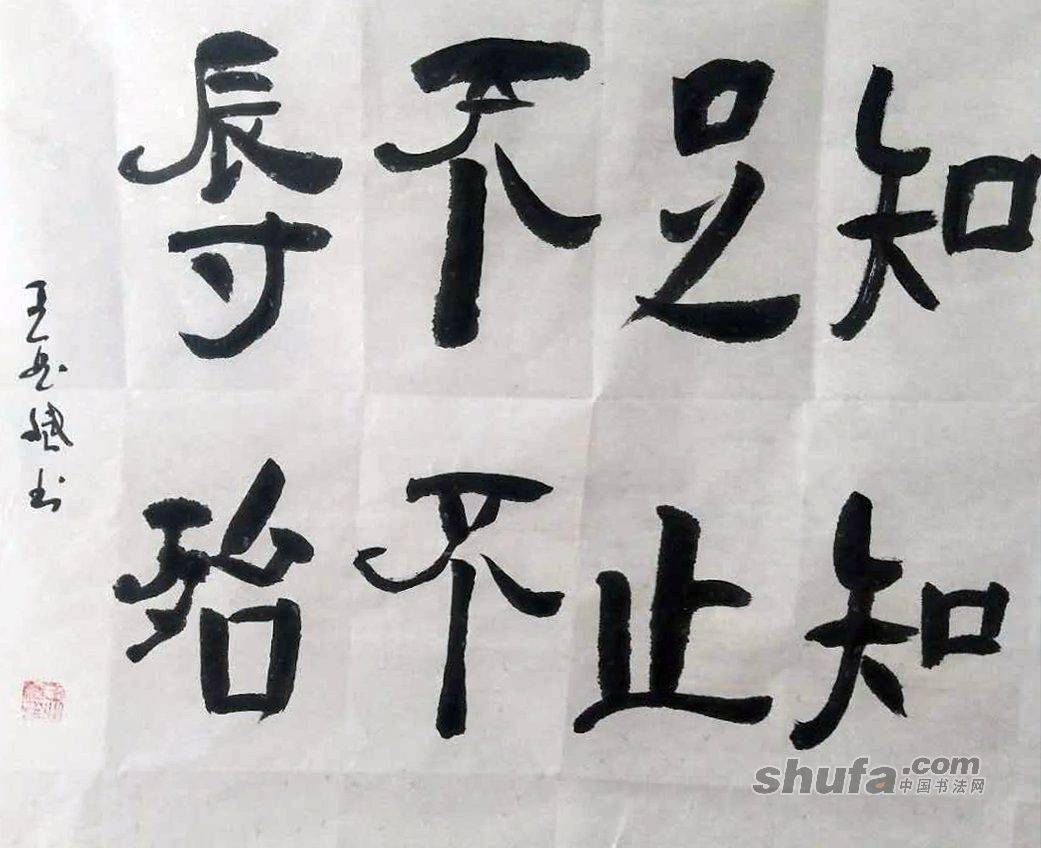 知足不辱
知止不殆
王斌书
shufa.com
中国书法网